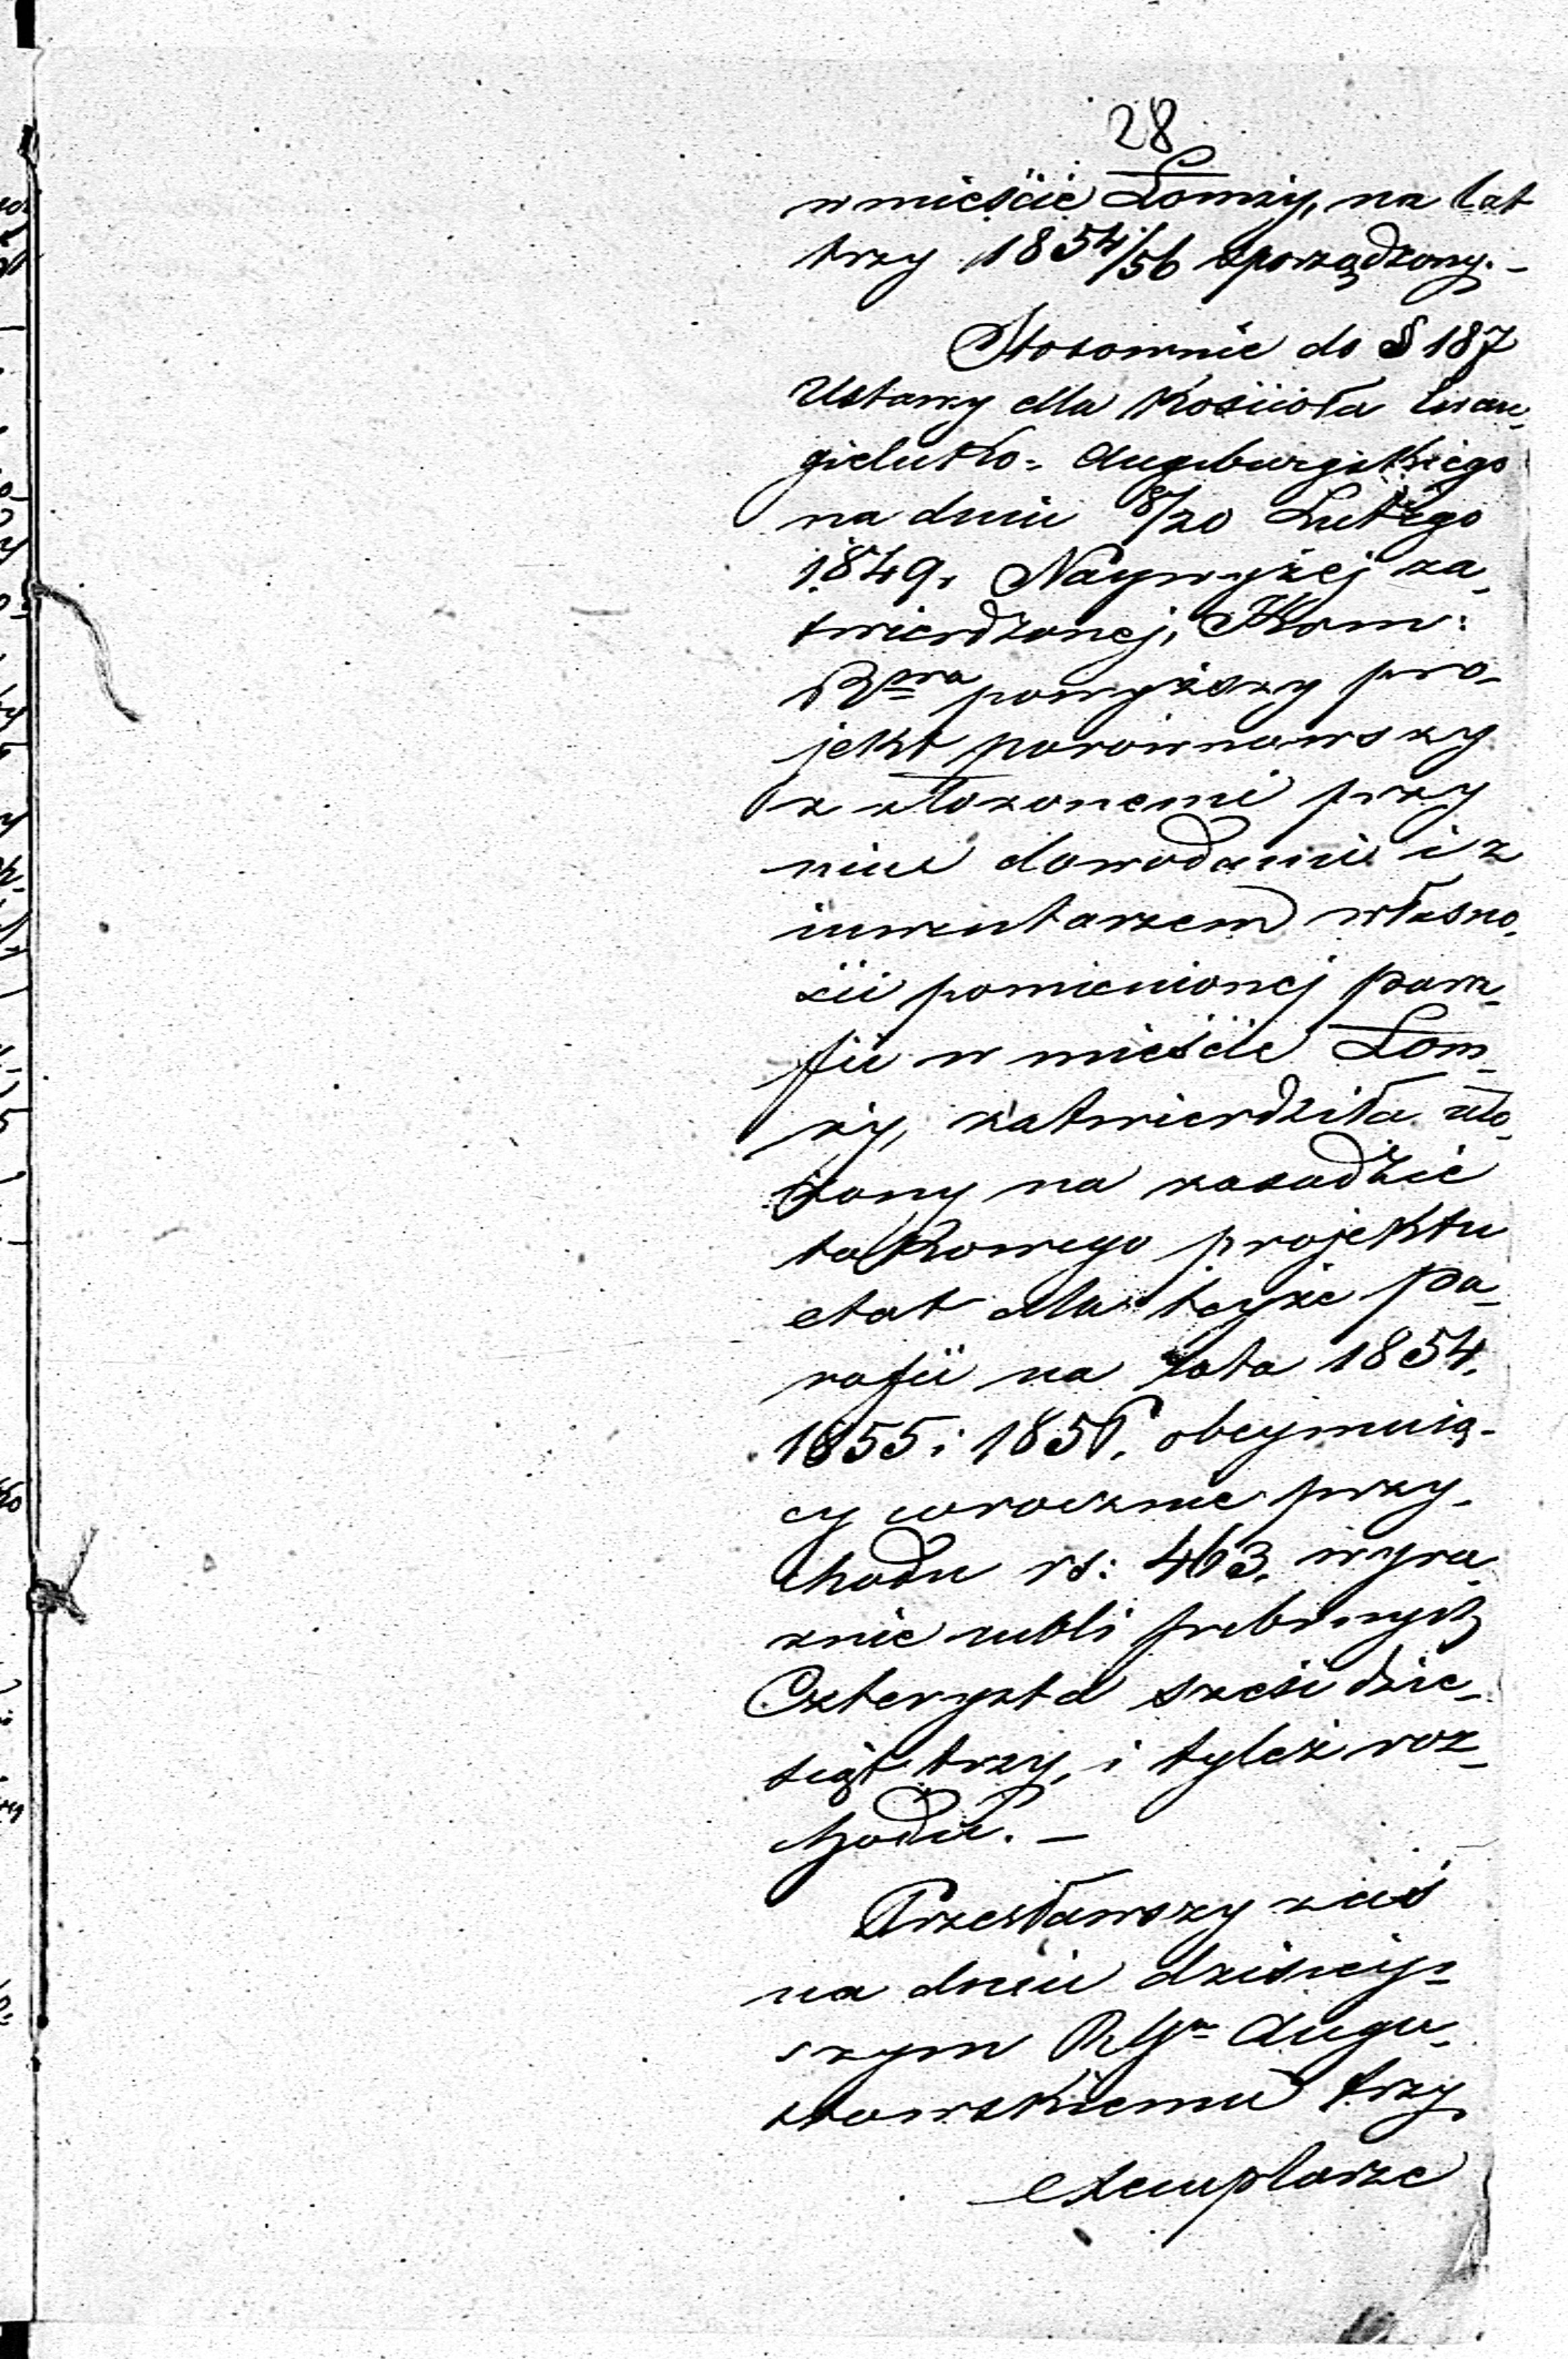 28
w mieście Łomży, na lat
trzy 1854/56 sporządzony. –
Stosownie do § 187
Ustawy dla Kościoła Ewan-
gielicko-Augsburgskiego
na dniu 8/20 Lutego
1849 r. Naywyżej za-
twierdzonej, Kom:
Rzowa powyższy pro-
jekt porównawszy
z złożonemi przy
nim dowodami i z
inwentarzem własno-
ści pomienionej para-
fii w mieście Łom-
ży, zatwierdziła uło-
żony na zasadzie
takowego projektu
etat dla teyże pa-
rafii na lata 1854.
1855 i 1856. obeymują-
cy corocznie przy-
chodu rs: 463. wyra-
źnie rubli srebrnych
Czterysta sześćdzie-
siąt trzy, i tyleż roz-
chodu. –
Przesławszy zaś
na dniu dzisiey-
szym RGu Augu-
stowskiemu trzy
exemplarze